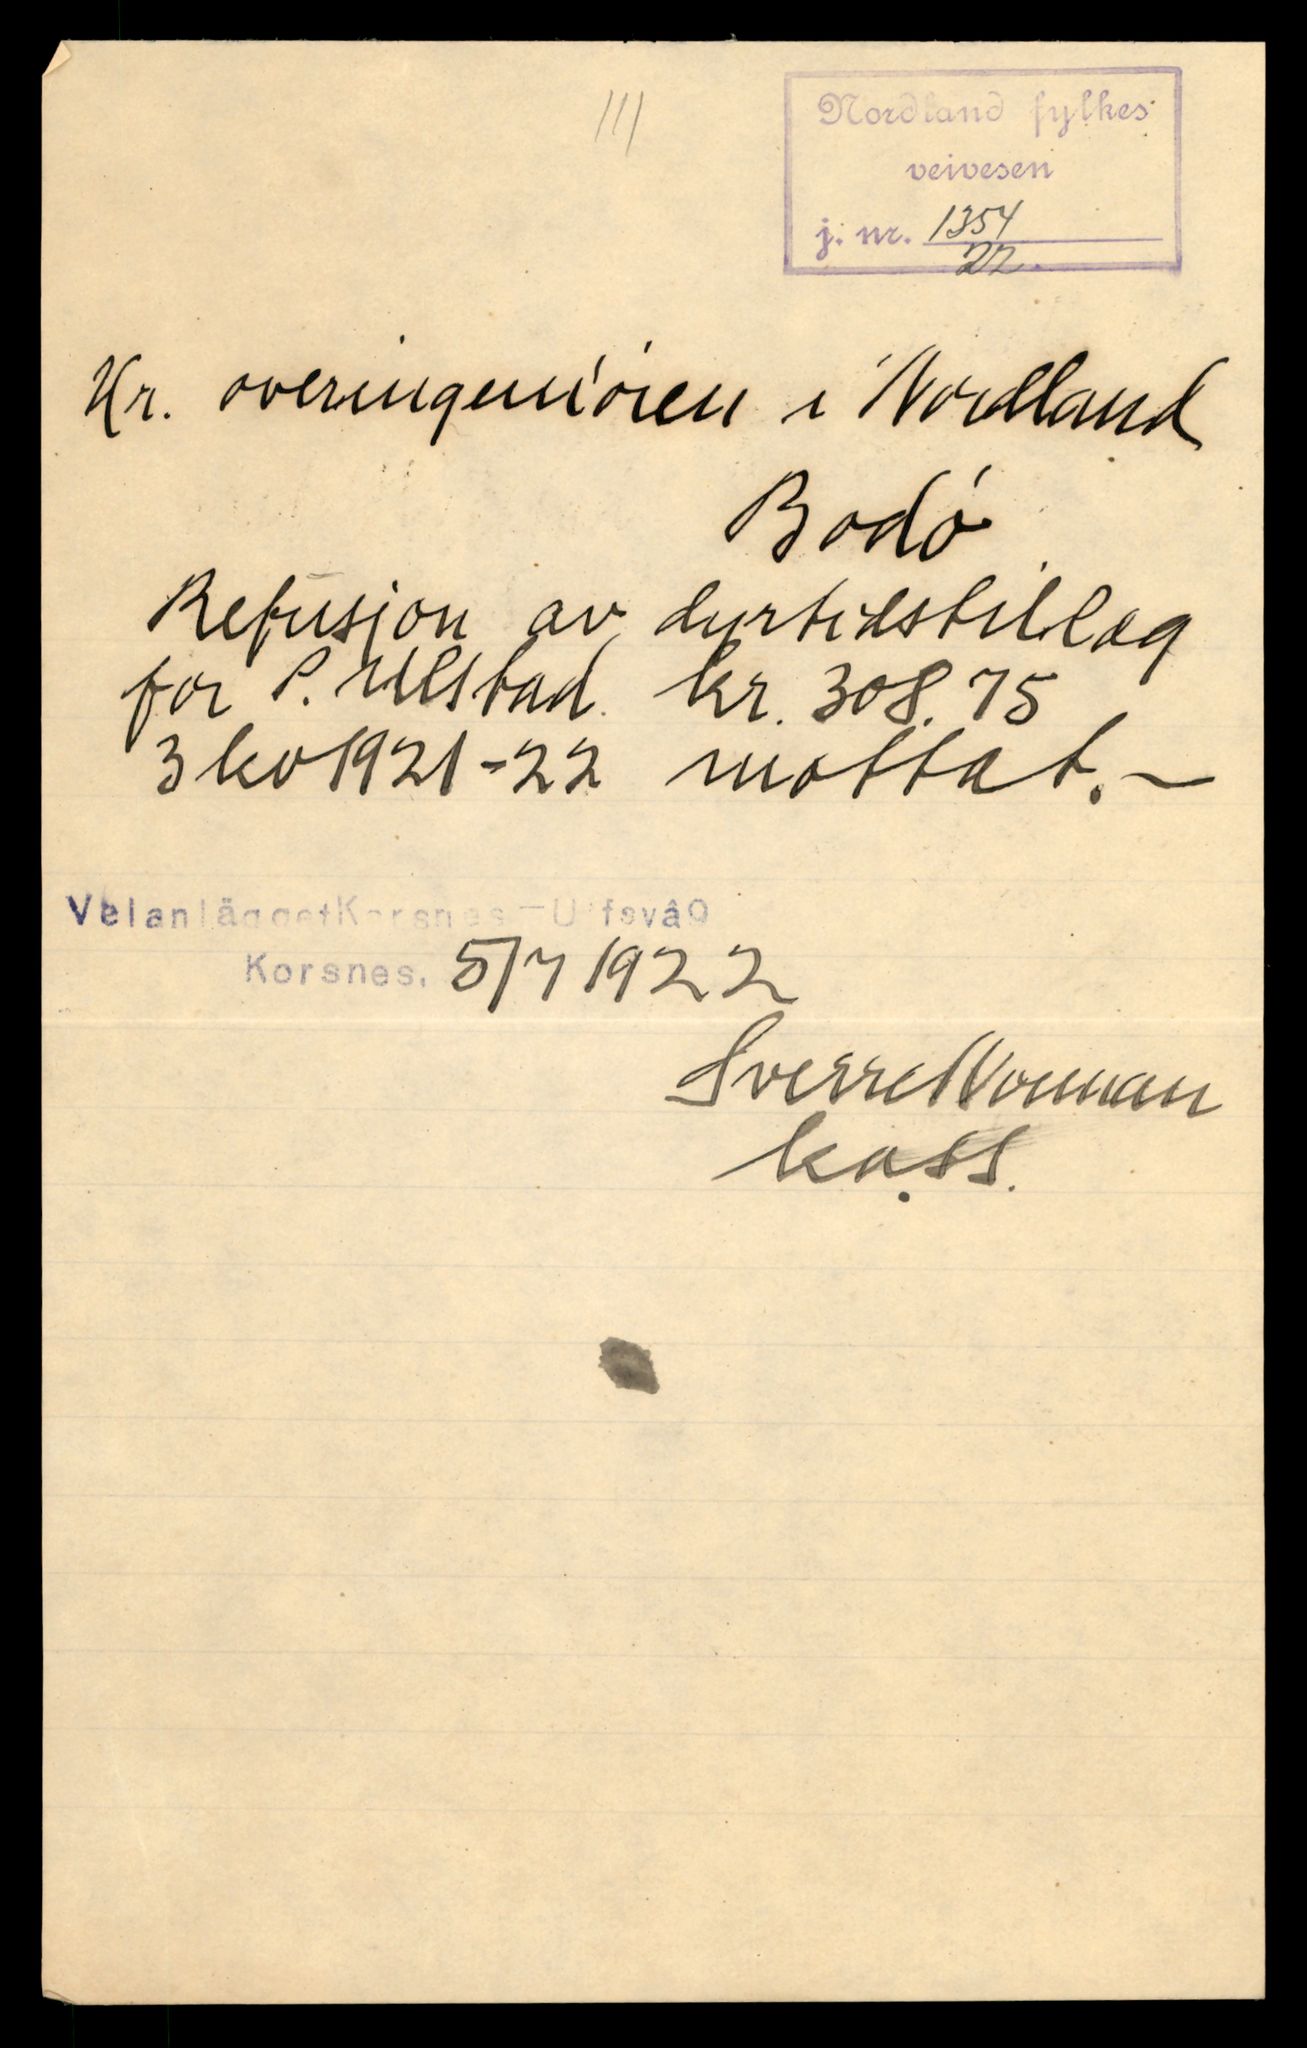 111
Nordland fylkes
veivesen
j. nr. 1354
22.
Hr. overingeniören i Nordland
Bodó
Refusjon av dyrtidstillæg
for P. Ulstad kr. 308.75
3 kv 1921-22 mottat. —
VeianläggetKorsnes-Ulfsvåg
Korsnes. 5/7 1922
Sverre Norman
kass.